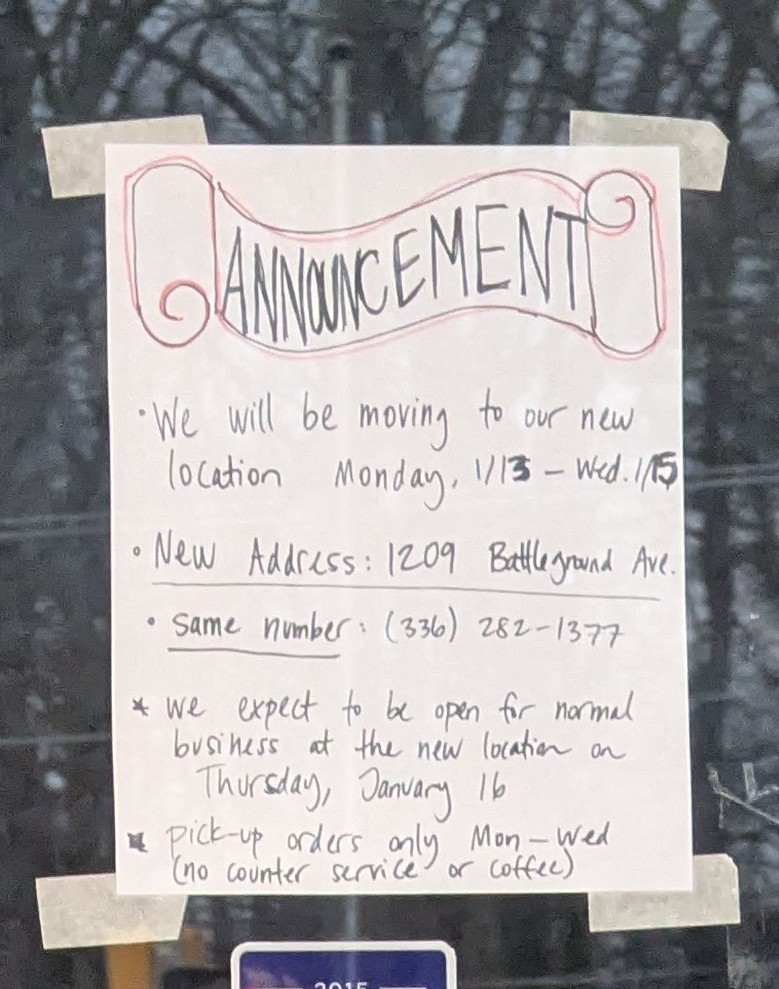 ANNOUNCEMENT
• We will be moving to our new
location Monday, 1/13 – Wed. 1/15
• New Address: 1209 Battleground Ave.
• same number: (336) 282-1377
* we expect to be open for normal
business at the new location on
Thursday, January 16
* pick-up orders only Mon – Wed
(no counter service or coffee)
2015